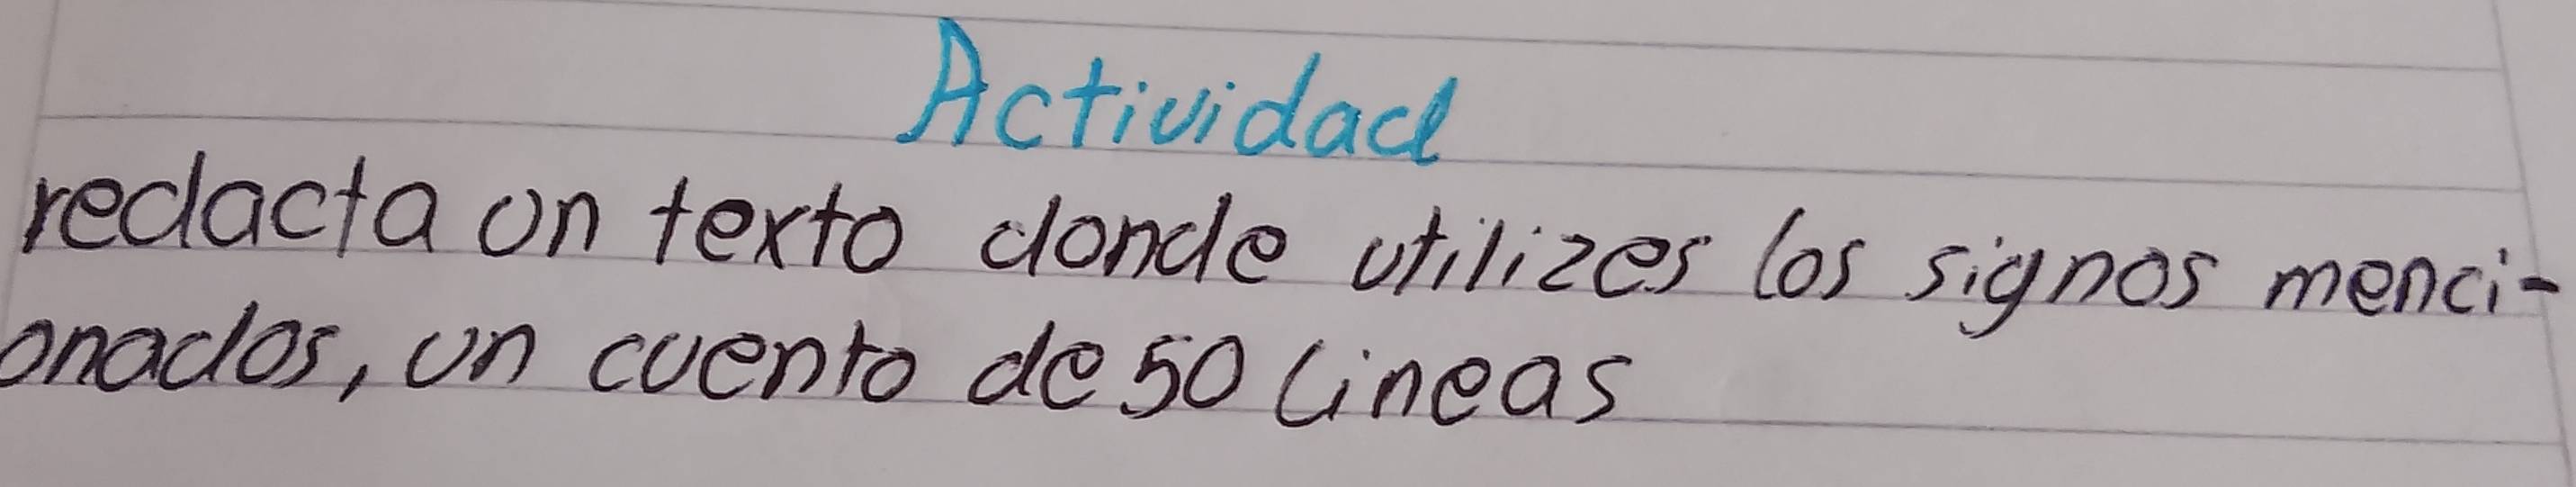 Actividad
redacta un texto donde utilizes los signos menci-
onados, un cuento de 50 lineas